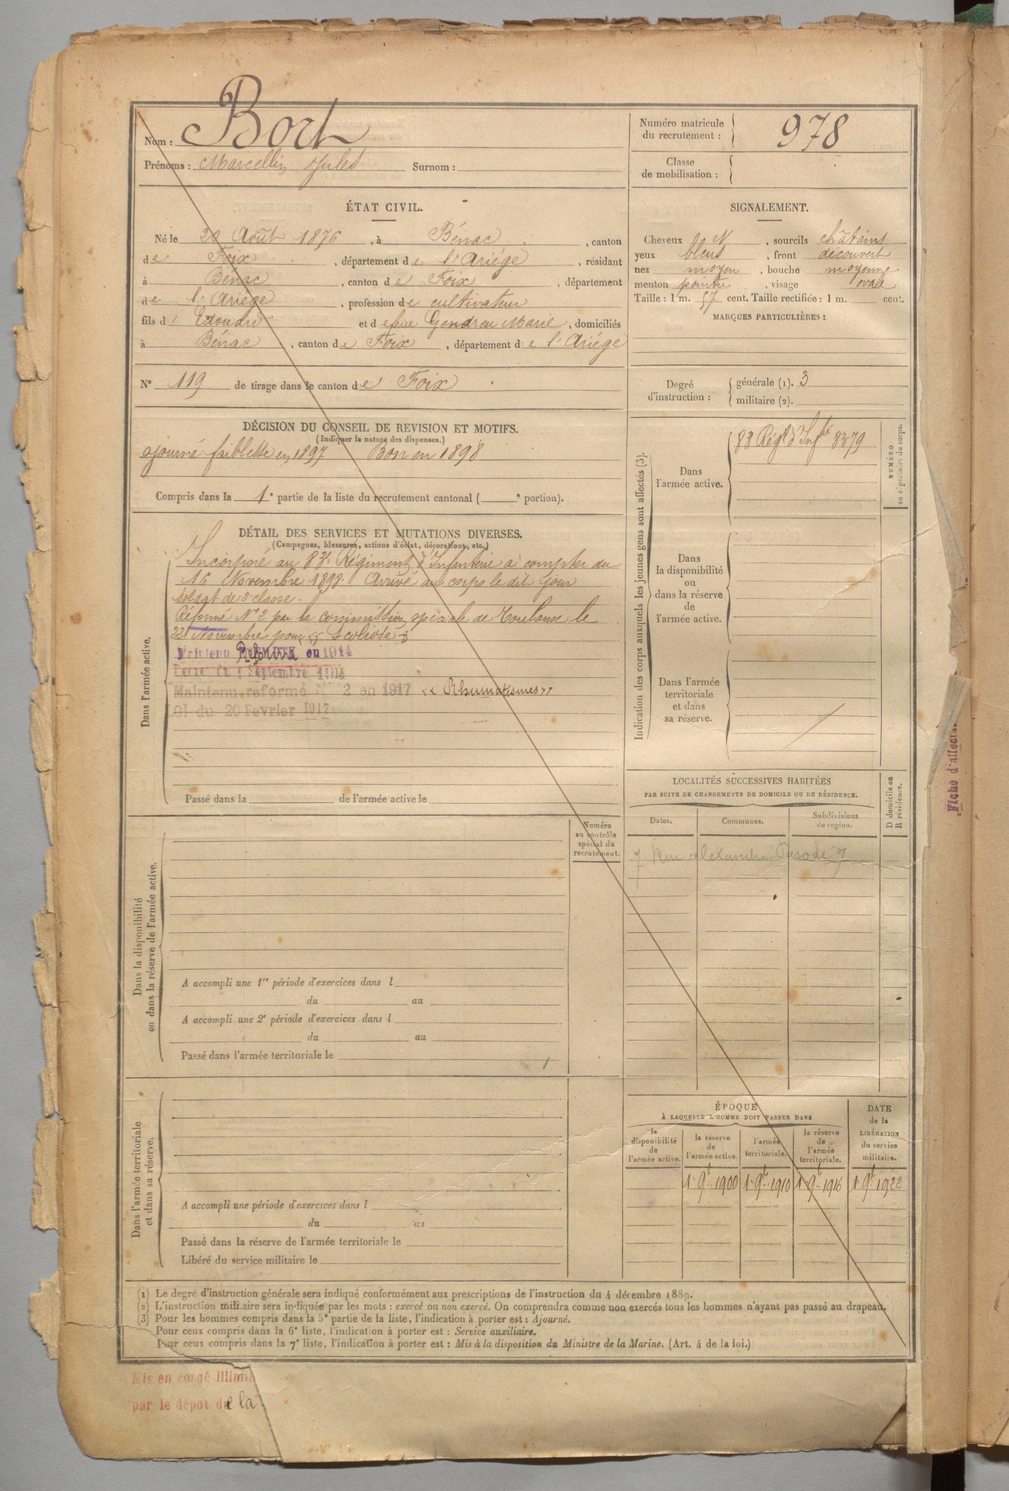 Nom : Bort
Prénoms : Marcellin Jules Surnom :
Numéro matricule du recrutement : 978
Classe de mobilisation :
ÉTAT CIVIL.
Né le 29 Août 1876, à Bénac, canton
de Foix, département de l'Ariège, résidant
à Bénac, canton de Foix, département
de l'Ariège, profession de cultivateur
fils d' et de feue Gendreu Marie, domiciliés
à Bénac, canton de Foix, département de l'Ariège
N° 119 de tirage dans le canton de Foix
SIGNALEMENT.
Cheveux N, sourcils châtains
yeux bleus, front découvert
nez moyen, bouche moyenne
menton pointu, visage oval
Taille : 1 m. 57 cent. Taille rectifiée : 1 m. cent.
MARQUES PARTICULIÈRES :
Degré d'instruction : générale (1). 3
militaire (2).
DÉCISION DU CONSEIL DE REVISION ET MOTIFS.
(Indiquer la nature des dispenses.)
ajourné faiblesse en 1897 Bon en 1898
Compris dans la 1e partie de la liste du recrutement cantonal ( e portion).
DÉTAIL DES SERVICES ET MUTATIONS DIVERSES.
(Campagnes, blessures, actions d'éclat, décorations, etc.)
Dans l'armée active.
Incorporé au 83e Régiment d'Infanterie à compter du
16 Novembre 1898. Arrivé au corps le dit jour
soldat de 2e classe.
Réformé N° 2 par la commission spéciale de Toulouse le
22 Novembre pour "Scoliose"
Maintenu Réformé en 1914
Décret du 9 Septembre 1914
Maintenu réformé N° 2 en 1917 "Rhumatismes"
Loi du 20 Février 1917
Passé dans la de l'armée active le
Indication des corps auxquels les jeunes gens sont affectés (3).
NUMÉRO au répertoire du corps.
Dans l'armée active.
83 Régt d'Infie 8379
Dans la disponibilité ou dans la réserve de l'armée active.
Dans l'armée territoriale et dans sa réserve.
LOCALITÉS SUCCESSIVES HABITÉES
PAR SUITE DE CHANGEMENTS DE DOMICILE OU DE RÉSIDENCE.
Dates. Communes. Subdivisions de région. D domicile ou R résidence.
7 Rue Alexandre
Numéro au contrôle spécial du recrutement.
Dans la disponibilité ou dans la réserve de l'armée active.
A accompli une 1re période d'exercices dans l
du au
A accompli une 2e période d'exercices dans l
du au
Passé dans l'armée territoriale le
Dans l'armée territoriale et dans sa réserve.
A accompli une période d'exercices dans l
du au
Passé dans la réserve de l'armée territoriale le
Libéré du service militaire le
ÉPOQUE
À LAQUELLE L'HOMME DOIT PASSER DANS
la disponibilité de l'armée active.
la réserve de l'armée active.
l'armée territoriale.
la réserve de l'armée territoriale.
DATE de la LIBÉRATION du service militaire.
1 9bre 1900 1 9bre 1910 1 9bre 1916 1 9bre 1922
(1) Le degré d'instruction générale sera indiqué conformément aux prescriptions de l'instruction du 4 décembre 1889.
(2) L'instruction militaire sera indiquée par les mots : exercé ou non exercé. On comprendra comme non exercés tous les hommes n'ayant pas passé au drapeau.
(3) Pour les hommes compris dans la 5e partie de la liste, l'indication à porter est : Ajourné.
Pour ceux compris dans la 6e liste, l'indication à porter est : Service auxiliaire.
Pour ceux compris dans la 7e liste, l'indication à porter est : Mis à la disposition du Ministre de la Marine. (Art. 4 de la loi.)
Mis en congé illimi
par le dépôt de la
Fiche d'affectat